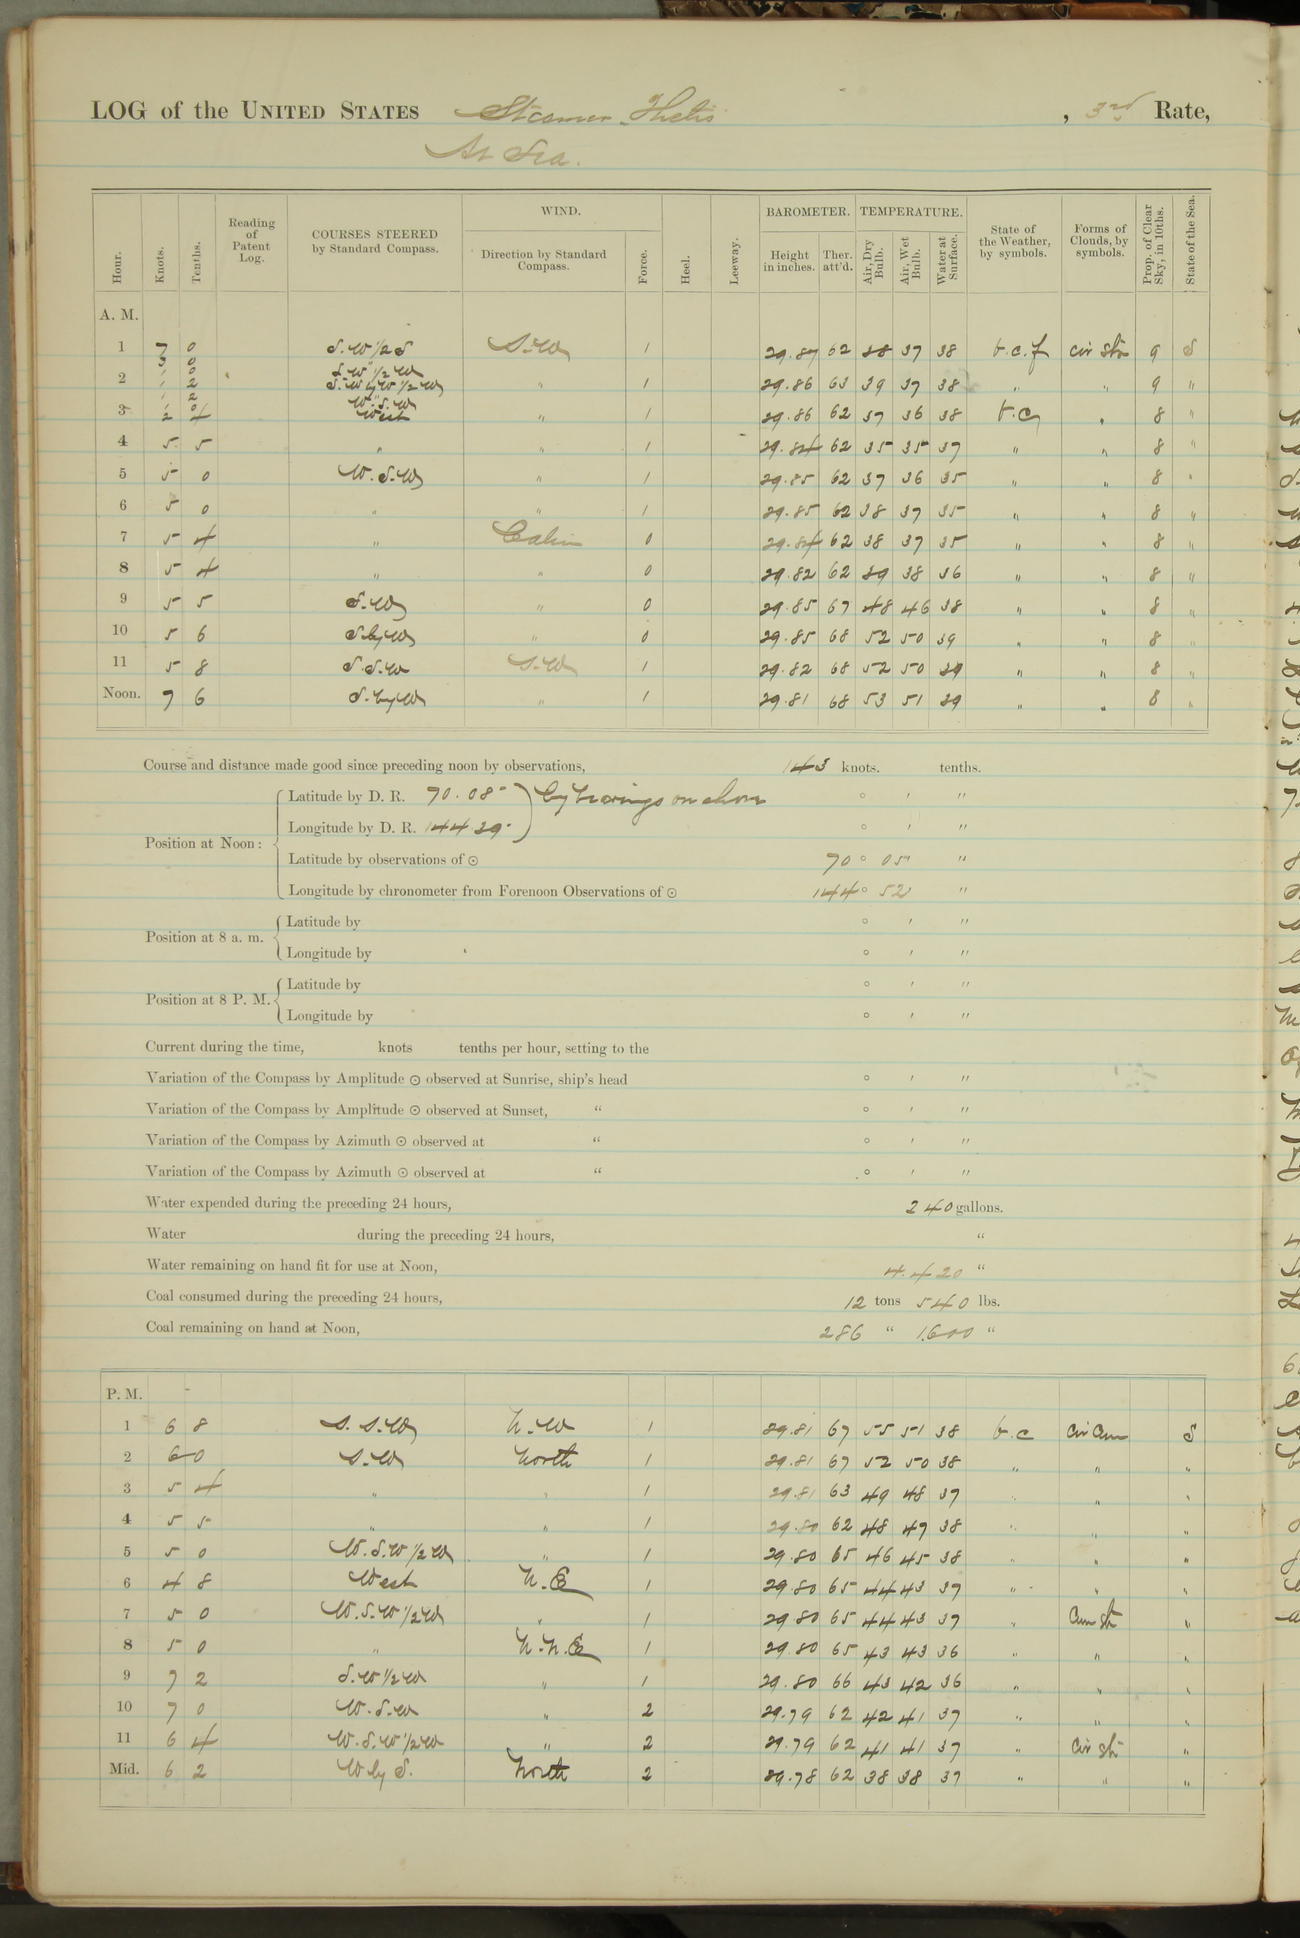 LOG of the UNITED STATES Steamer Thetis, 3rd Rate,
At Sea.
Hour. Knots. Tenths. Reading of Patent Log. COURSES STEERED by Standard Compass. WIND. Direction by Standard Compass. Force. Heel. Leeway. BAROMETER. Height in inches. Ther. att'd. TEMPERATURE. Air, Dry Bulb. Air, Wet Bulb. Water at Surface. State of the Weather, by symbols. Forms of Clouds, by symbols. Prop. of Clear Sky, in 10ths. State of the Sea.
A. M.
1 7 0 S.W 1/2 S S.W 1 29.87 62 38 37 38 b.c.f cir str 9 S
3 0 S.W 1/2 W
2 1 0 S.W by W 1/2 W " 1 29.86 63 39 37 38 " " 9 "
1 2 W.S.W
3 2 4 West " 1 29.86 62 37 36 38 b.c " 8 "
4 5 5 " " 1 29.84 62 35 35 37 " " 8 "
5 5 0 W.S.W " 1 29.85 62 37 36 35 " " 8 "
6 5 0 " " 1 29.85 62 38 37 35 " " 8 "
7 5 4 " Calm 0 29.84 62 38 37 35 " " 8 "
8 5 4 " " 0 29.82 62 39 38 36 " " 8 "
9 5 5 S.W " 0 29.85 67 48 46 38 " " 8 "
10 5 6 S by W " 0 29.85 68 52 50 39 " " 8 "
11 5 8 S.S.W S.W 1 29.82 68 52 50 39 " " 8 "
Noon. 7 6 S. by W " 1 29.81 68 53 51 39 " " 8 "
Course and distance made good since preceding noon by observations, 143 knots. tenths.
Position at Noon: Latitude by D. R. 70.08 ) by bearings on shore ° ' "
Longitude by D. R. 144 39 ° ' "
Latitude by observations of ⊙ 70 ° 05 ' "
Longitude by chronometer from Forenoon Observations of ⊙ 144 ° 52 ' "
Position at 8 a. m. Latitude by ° ' "
Longitude by ° ' "
Position at 8 P. M. Latitude by ° ' "
Longitude by ° ' "
Current during the time, knots tenths per hour, setting to the
Variation of the Compass by Amplitude ⊙ observed at Sunrise, ship's head ° ' "
Variation of the Compass by Amplitude ⊙ observed at Sunset, " ° ' "
Variation of the Compass by Azimuth ⊙ observed at " ° ' "
Variation of the Compass by Azimuth ⊙ observed at " ° ' "
Water expended during the preceding 24 hours, 240 gallons.
Water during the preceding 24 hours, "
Water remaining on hand fit for use at Noon, 4.420 "
Coal consumed during the preceding 24 hours, 12 tons 540 lbs.
Coal remaining on hand at Noon, 286 " 1.600 "
P. M.
1 6 8 S.S.W N.W 1 29.81 67 55 51 38 b.c cir cum S
2 6 0 S.W North 1 29.81 67 52 50 38 " " "
3 5 4 " " 1 29.81 63 49 48 37 " " "
4 5 5 " " 1 29.80 62 48 47 38 " " "
5 5 0 W.S.W 1/2 W " 1 29.80 65 46 45 38 " " "
6 4 8 West N.E 1 29.80 65 44 43 37 " " "
7 5 0 W.S.W 1/2 W " 1 29.80 65 44 43 37 " cum str "
8 5 0 " N.N.E 1 29.80 65 43 43 36 " " "
9 7 2 S.W 1/2 W " 1 29.80 66 43 42 36 " " "
10 7 0 W.S.W " 2 29.79 62 42 41 37 " " "
11 6 4 W.S.W 1/2 W " 2 29.79 62 41 41 37 " cir str "
Mid. 6 2 W by S. North 2 29.78 62 38 38 37 " " "